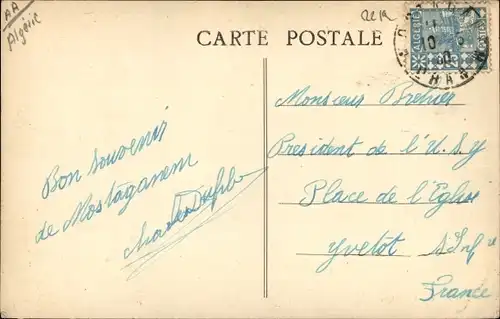 AA
Algérie
CARTE POSTALE
ALGERIE
ORAN
Bon souvenir
de Mostaganem
Monsieur Brehier
President de l'U.S.Y
Place de l'Eglise
Yvetot S. Infre
France